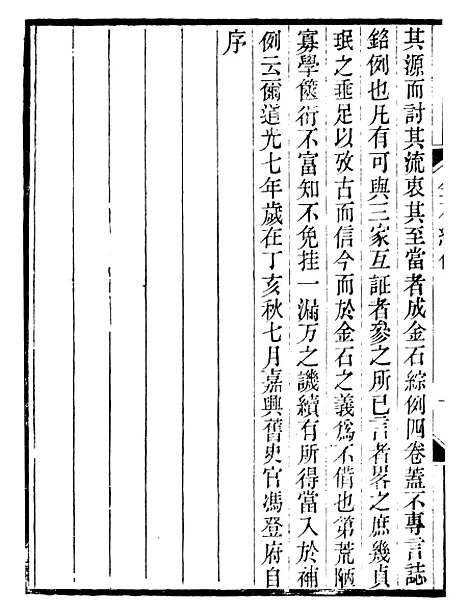 其源而討其流衷其至當者成金石綜例四卷蓋不專言誌
銘例也凡有可與三家互証者參之所已言者畧之庶幾貞
珉之垂足以攷古而信今而於金石之義爲不偝也第荒陋
寡學儀衍不富知不免挂一漏万之譏續有所得當入於補
例云爾道光七年歲在丁亥秋七月嘉興舊史官馮登府自
序